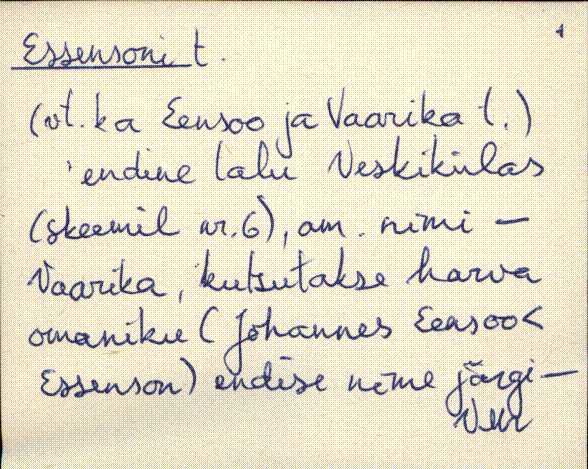 1
Essensoni t.
(vt. ka Eensoo ja Vaarika t.)
'endine talu Veskikülas
(skeemil nr. 6), am. nimi —
Vaarika, kutsutakse harva
omaniku (Johannes Eensoo <
Essenson) endise nime järgi —